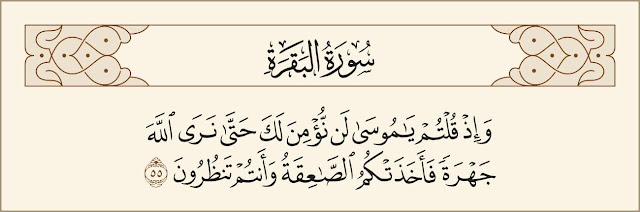 سُورَةُ البَقَرَةِ
وَإِذۡ قُلۡتُمۡ يَٰمُوسَىٰ لَن نُّؤۡمِنَ لَكَ حَتَّىٰ نَرَى ٱللَّهَ
جَهۡرَةٗ فَأَخَذَتۡكُمُ ٱلصَّٰعِقَةُ وَأَنتُمۡ تَنظُرُونَ ٥٥